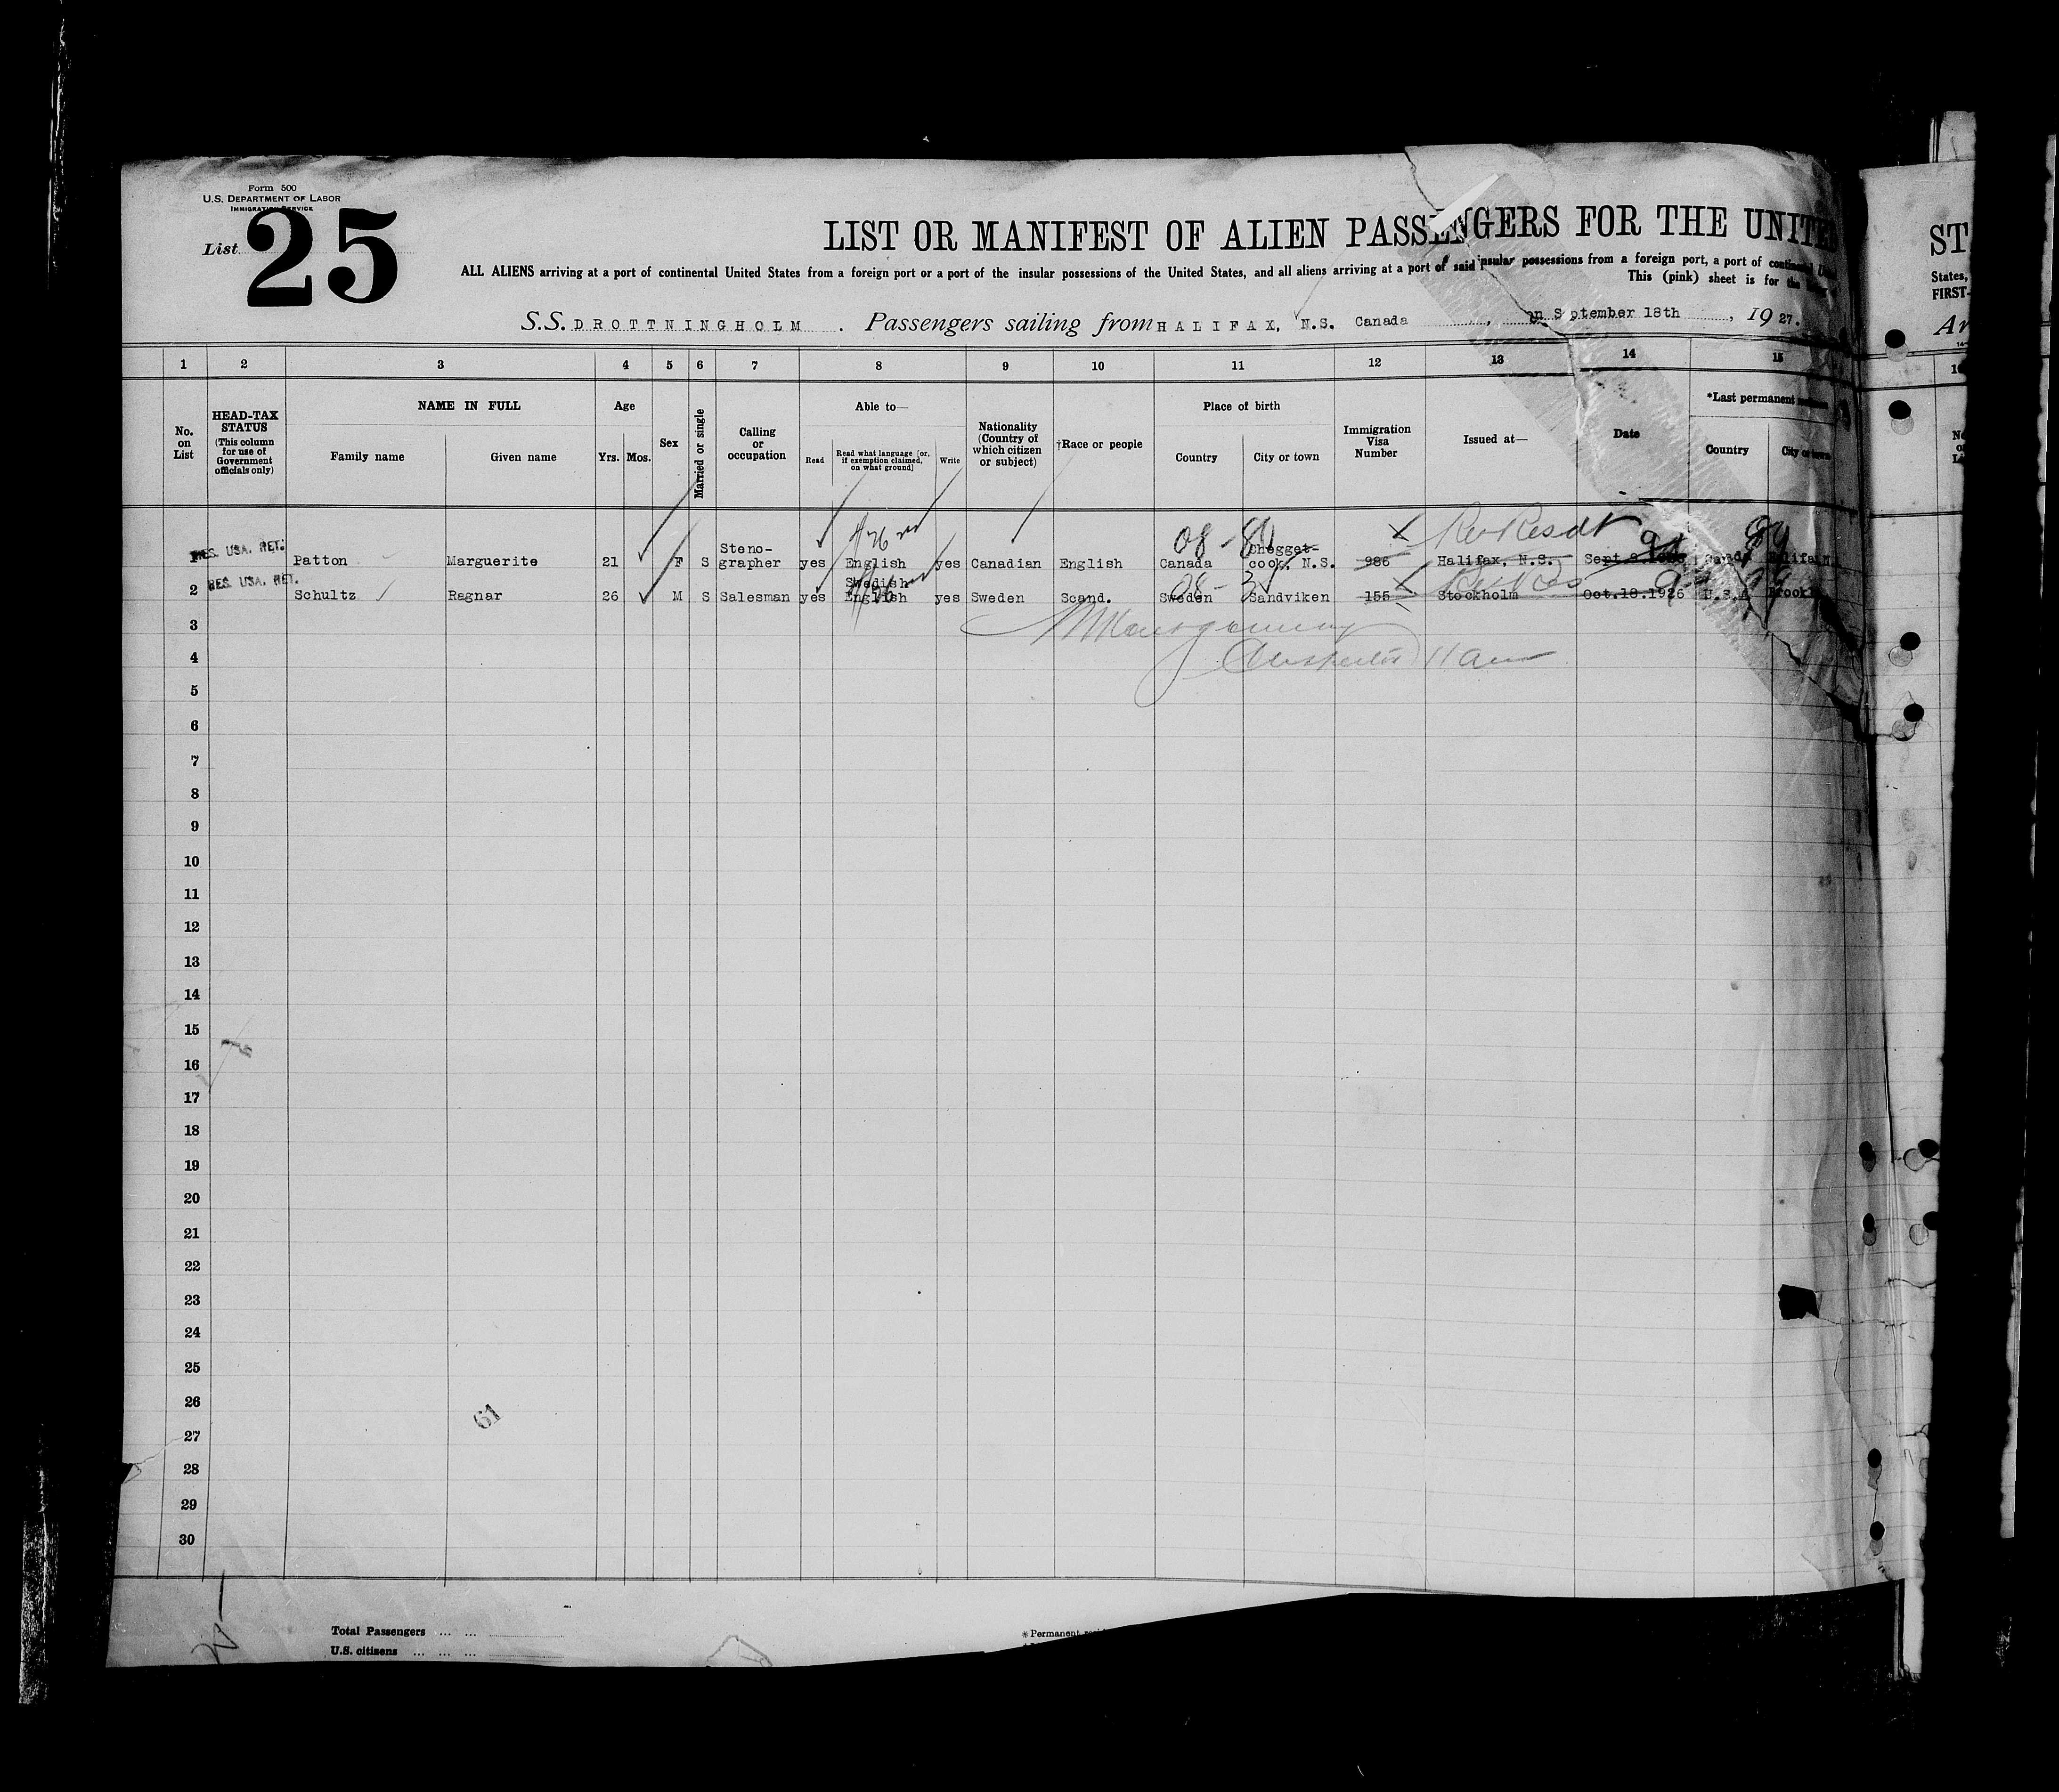 Form 500
U.S. DEPARTMENT OF LABOR
IMMIGRATION SERVICE
List 25
LIST OR MANIFEST OF ALIEN PASSENGERS FOR THE UNITED
ALL ALIENS arriving at a port of continental United States from a foreign port or a port of the insular possessions of the United States, and all aliens arriving at a port of said insular possessions from a foreign port, a port of continental
This (pink) sheet is for the
S.S. DROTTNINGHOLM . Passengers sailing from HALIFAX, N.S. Canada , on September 18th , 1927.
ST
States,
FIRST-
Ar
1 2 3 4 5 6 7 8 9 10 11 12 13 14 15
No. on List
HEAD-TAX STATUS (This column for use of Government officials only)
NAME IN FULL
Family name Given name
Age
Yrs. Mos.
Sex
Married or single
Calling or occupation
Able to—
Read Read what language [or, if exemption claimed, on what ground] Write
Nationality (Country of which citizen or subject)
†Race or people
Place of birth
Country City or town
Immigration Visa Number
Issued at—
Date
*Last permanent
Country City or town
1 RES. USA. RET. Patton Marguerite 21 F S Steno-grapher yes English yes Canadian English Canada Chegget-cook, N.S. 986 Halifax, N.S. Sept. Canada Halifax
08-80
89
2 RES. USA. RET. Schultz Ragnar 26 M S Salesman yes Swedish English yes Sweden Scand. Sweden Sandviken 155 Stockholm Oct.18.1926 U.S.A. Brook
3
Montgomery
4
11 am
5
6
7
8
9
10
11
12
13
14
15
16
17
18
19
20
21
22
23
24
25
26
61
27
28
29
30
Total Passengers ... ...
U.S. citizens ... ... ...
*Permanent